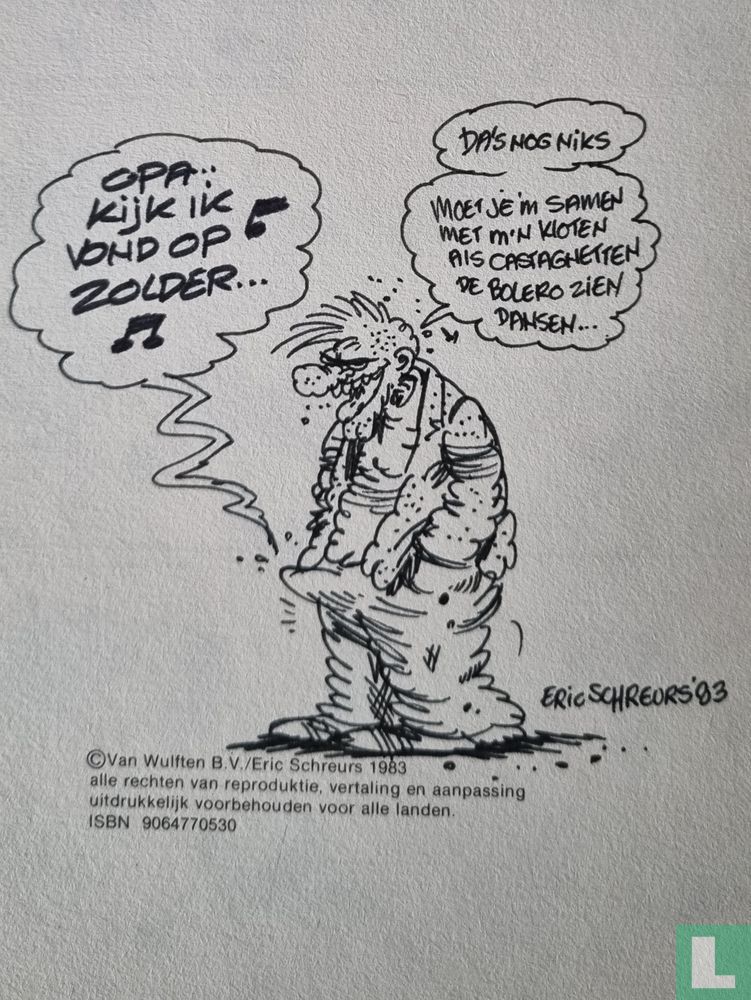 OPA..
KIJK IK
VOND OP
ZOLDER...
DA'S NOG NIKS
MOET JE'M SAMEN
MET M'N KLOTEN
ALS CASTAGNETTEN
DE BOLERO ZIEN
DANSEN...
ERIC SCHREURS '83
©Van Wulften B.V./Eric Schreurs 1983
alle rechten van reproduktie, vertaling en aanpassing
uitdrukkelijk voorbehouden voor alle landen.
ISBN 9064770530
L